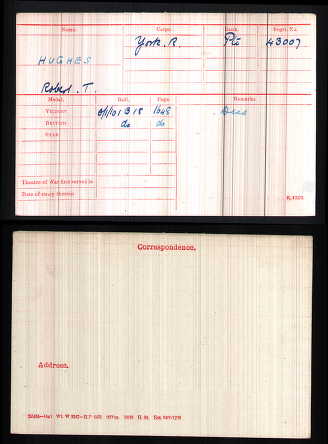 Name. Corps. Rank. Regtl. No.
York. R. Pte 43007
HUGHES
Robert. T.
Medal. Roll. Page. Remarks.
VICTORY 1648 Dead
BRITISH do do
STAR
Theatre of War first served in
Date of entry therein
K.1380.
Correspondence.
Address.